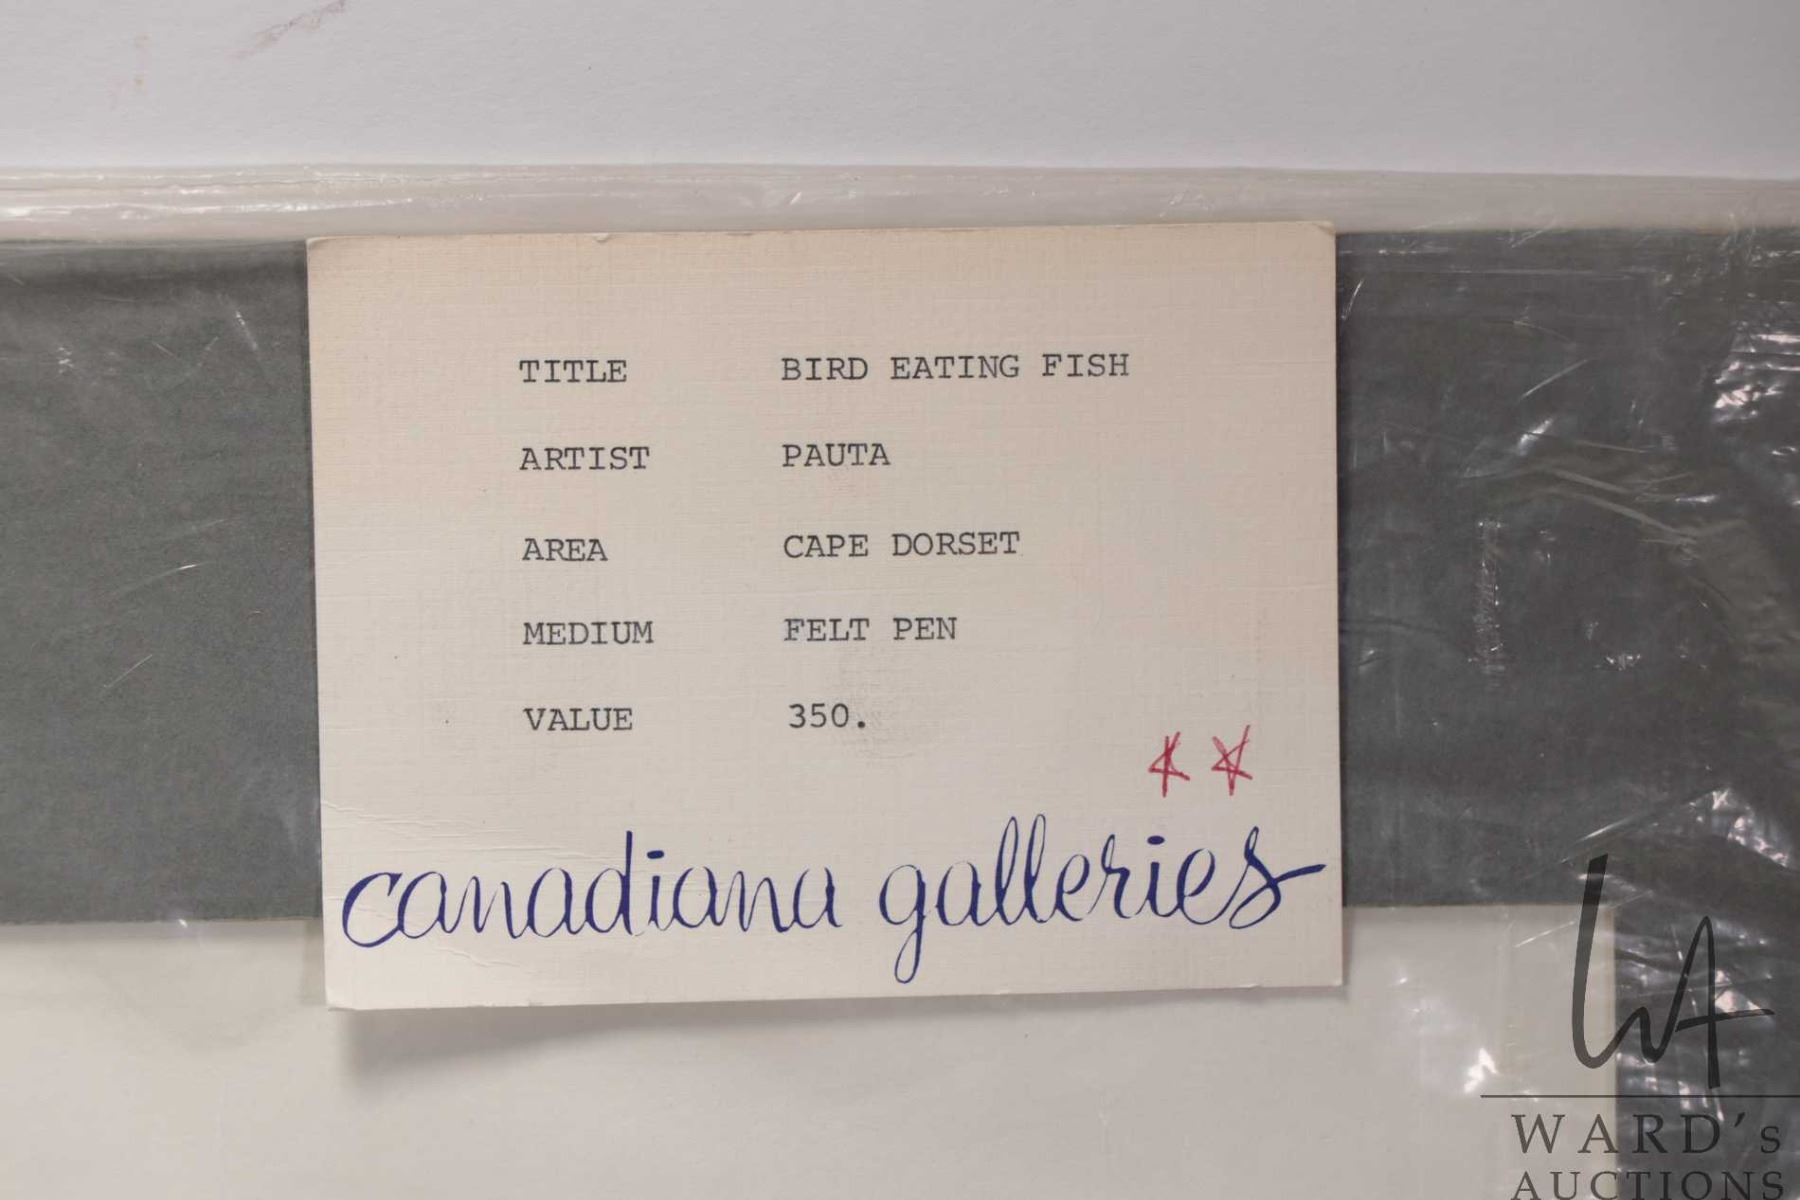 TITLE BIRD EATING FISH
ARTIST PAUTA
AREA CAPE DORSET
MEDIUM FELT PEN
VALUE 350.
canadiana galleries
WA
WARD's
AUCTIONS